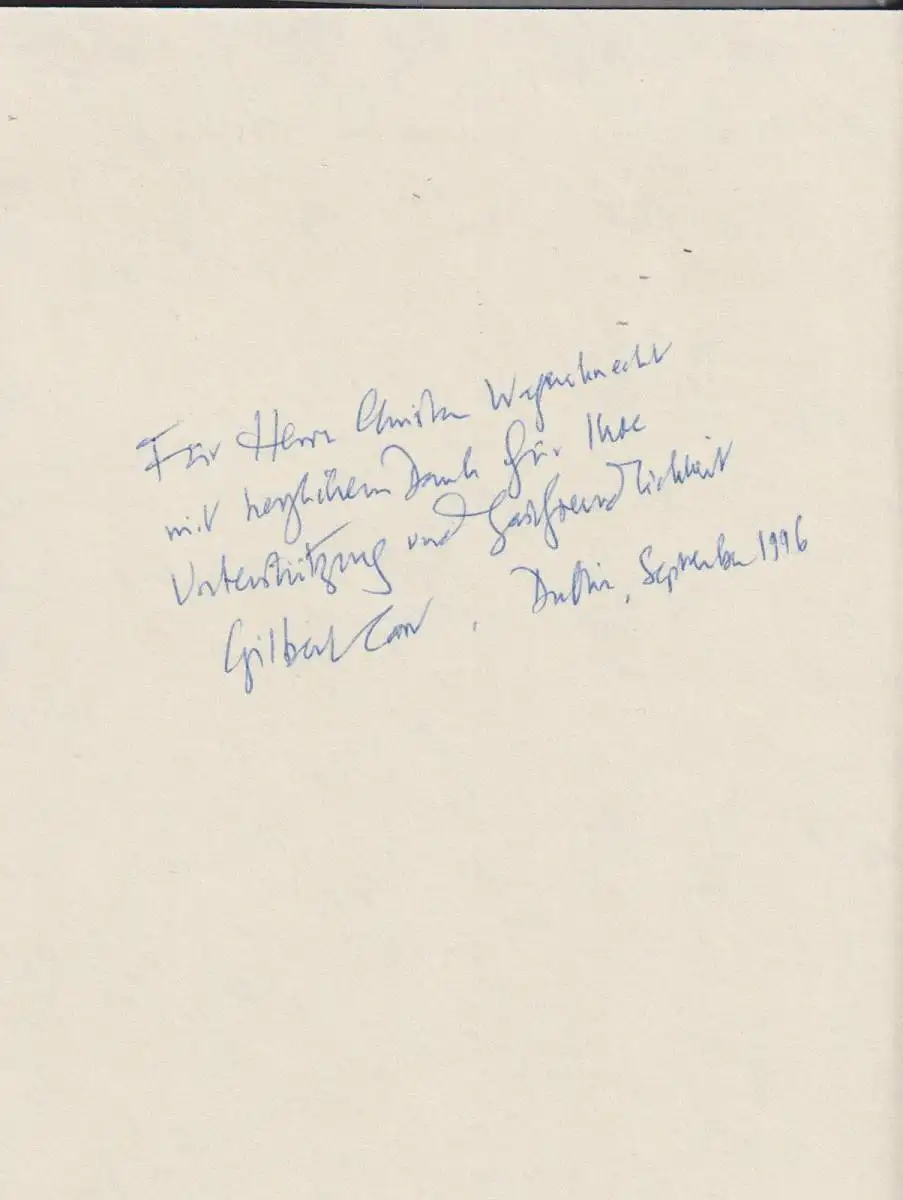 Für Herrn Christian Wagenknecht
mit herzlichem Dank für Ihre
Unterstützung und Gastfreundlichkeit
Gilbert Carr, Dublin, September 1996